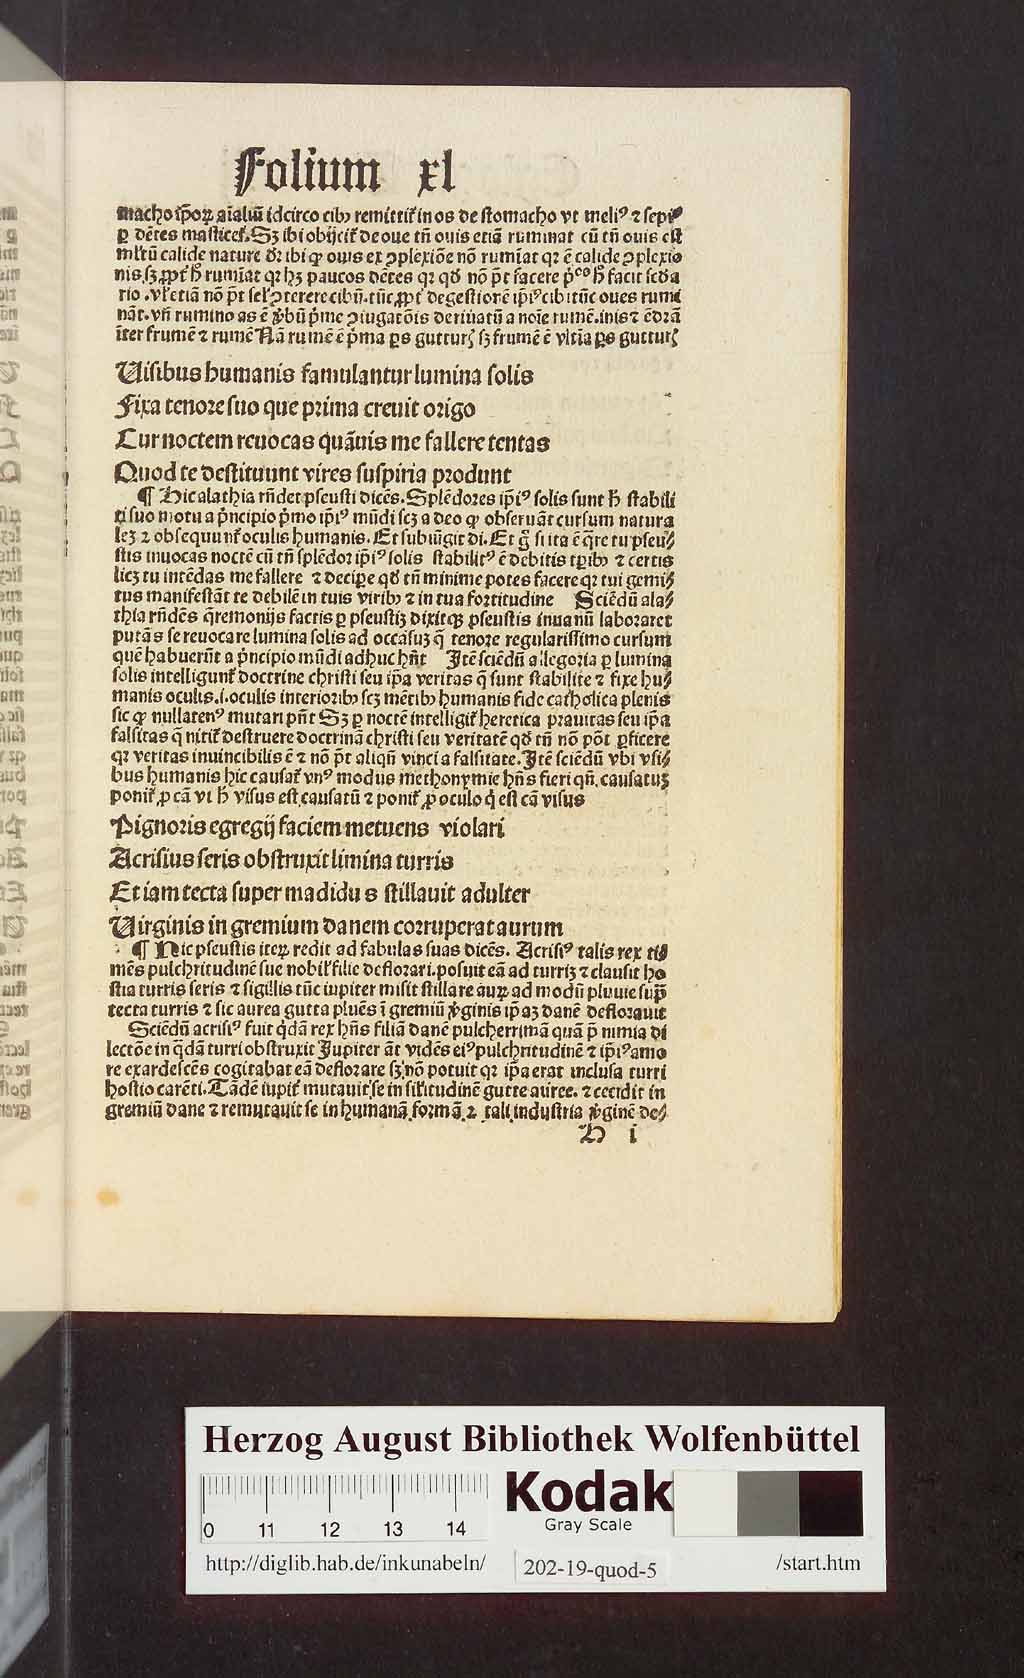 Folium xl
macho ip̄oꝝ aīaliū idcirco cibꝰ remittit᷑ in os de stomacho vt meliꝰ ⁊ sepiꝰ
ꝑ dētes masticet᷑. Sꝫ ibi obijcit᷑ de oue tn̄ ouis etiā ruminat cū tn̄ ouis est
ml̄tū calide nature d᷑r ibi ꝙ ouis ex ꝯplexiōe nō rumīat qꝛ ē calide ꝯplexio
nis. sꝫ ꝓpt᷑ ħ rumīat qꝛ hꝫ paucos dētes qꝛ qđ nō p̄t facere pⁱᵐᵒ ħ facit scđa
rio. vl̄ etiā nō p̄t sel̓ ꝯterere cibū. tūc ꝓpt᷑ degestionē ip̄iꝰ cibi tūc oues rumi
nāt. vn̄ rumino as ē v̓bū p̓me ꝯiugatōis deriuatū a noīe rumē. inis ⁊ ē dr̄a
īter frumē ⁊ rumē Nā rumē ē p̓ma ꝑs gutturꝭ sꝫ frumē ē vltīa ꝑs gutturꝭ
Uisibus humanis famulantur lumina solis
Fixa tenore suo que prima creuit origo
Cur noctem reuocas quāuis me fallere tentas
Quod te destituunt vires suspiria produnt
¶ Hic alathia rn̄det pseusti dicēs. Splēdores ip̄iꝰ solis sunt ħ stabili
ti suo motu a p̓ncipio p̓mo ip̄iꝰ mūdi scꝫ a deo ꝙ obseruāt cursum natura
leꝫ ⁊ obsequunt᷑ oculis humanis. Et subiūgit di. Et g̊ si ita ē q̄re tu pseu⸗
stis inuocas noctē cū tn̄ splēdor ip̄iꝰ solis stabilitꝰ ē debitis tꝑibꝰ ⁊ certis
licꝫ tu intēdas me fallere ⁊ decipe qđ tn̄ minime potes facere qꝛ tui gemi⸗
tus manifestāt te debilē in tuis viribꝰ ⁊ in tua fortitudine Sciēdū ala⸗
thia rn̄dēs q̄remonijs factis ꝑ pseustiꝫ dixit qꝫ pseustis inuanū laboraret
putās se reuocare lumina solis ad occasuꝫ q̄ tenore regularissimo cursum
quē habuerūt a p̓ncipio mūdi adhuc hn̄t Itē sciēdū allegoria ꝑ lumina
solis intelligunt᷑ doctrine christi seu ip̄a veritas q̄ sunt stabilite ⁊ fixe hu⸗
manis oculis .i. oculis interioribꝰ scꝫ mētibꝰ humanis fide catholica plenis
sic ꝙ nullatenꝰ mutari pn̄t Sꝫ ꝑ noctē intelligit᷑ heretica prauitas seu ip̄a
falsitas q̄ nitit᷑ destruere doctrinā christi seu veritatē qđ tn̄ nō pōt ꝑficere
qꝛ veritas inuincibilis ē ⁊ nō p̄t aliqn̄ vinci a falsitate. Itē sciēdū vbi visi⸗
bus humanis hic causat᷑ vnꝰ modus methonymie hn̄s fieri qn̄ causatuꝫ
ponit᷑ ꝓ cā vt ħ visus est causatū ⁊ ponit᷑ ꝓ oculo q̓ est cā visus
Pignoris egregij faciem metuens violari
Acrisius seris obstruxit limina turris
Et iam tecta super madidus stillauit adulter
Uirginis in gremium danem corruperat aurum
¶ Hic pseustis iteꝝ redit ad fabulas suas dicēs. Acrisiꝰ talis rex ti⸗
mēs pulchritudinē sue nobil᷑ filie deflorari. posuit eā ad turriꝫ ⁊ clausit ho
stia turris seris ⁊ sigillis tūc iupiter misit stillare auꝝ ad modū pluuie supͣ
tecta turris ⁊ sic aurea gutta pluēs ī gremiū v̓ginis ip̄aꝫ danē deflorauit
Sciēdū acrisiꝰ fuit q̓dā rex hn̄s filiā danē pulcherrimā quā p̄ nimia di
lectōe in q̄dā turri obstruxit Jupiter āt vidēs eiꝰ pulchritudinē ⁊ ip̄iꝰ amo
re exardescēs cogitabat eā deflorare sꝫ nō potuit qꝛ ip̄a erat inclusa turri
hostio carēti. Tādē iupit᷑ mutauit se in sil̓itudinē gutte auree. ⁊ cecidit in
gremiū dane ⁊ remutauit se in humanā formā ⁊ tali industria v̓ginē de⸗
H i
Herzog August Bibliothek Wolfenbüttel
0 11 12 13 14
Kodak
Gray Scale
http://diglib.hab.de/inkunabeln/ 202-19-quod-5 /start.htm